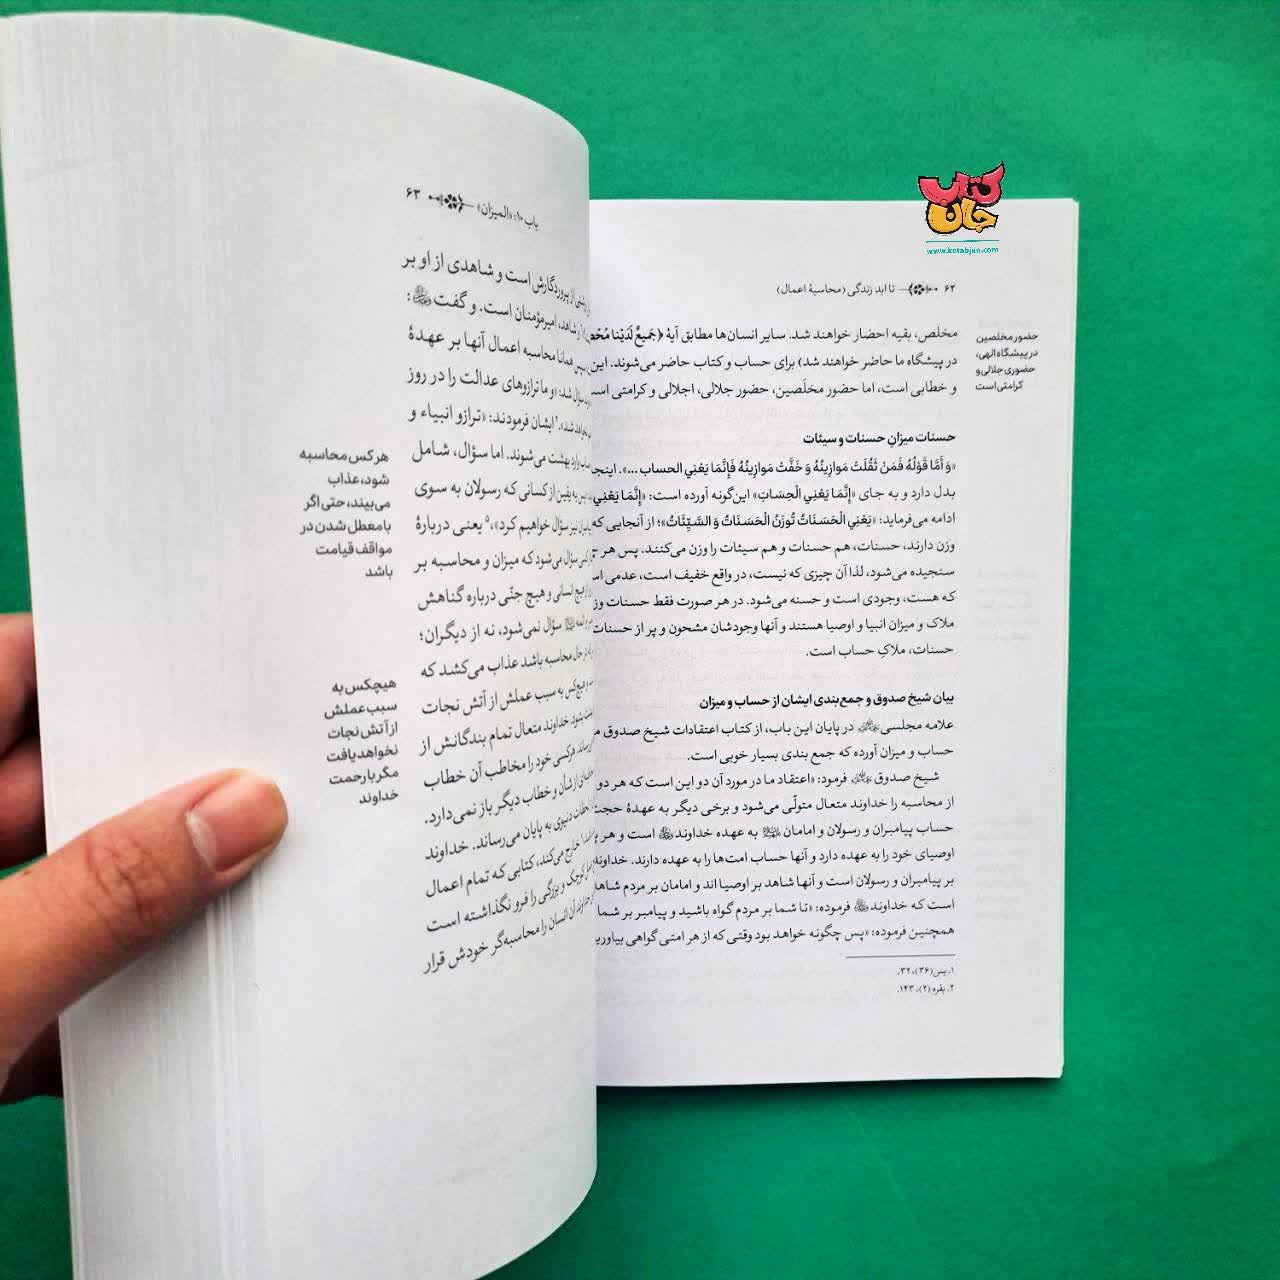 کتاب
جان
www.ketabjan.com
۶۲ تا ابد زندگی (محاسبهٔ اعمال)
حضور مخلصین
در پیشگاه الهی،
حضوری جلالی و
کرامتی است
مخلص، بقیه احضار خواهند شد. سایر انسان‌ها مطابق آیهٔ ﴿جَمیعٌ لَدَیْنا
در پیشگاه ما حاضر خواهند شد) برای حساب و کتاب حاضر می‌شوند. این
و خطابی است، اما حضور مخلَصین، حضور جلالی، اجلالی و کرامتی
حسنات میزانِ حسنات و سیئات
«وَ أَمَّا قَوْلُهُ فَمَنْ ثَقُلَتْ مَوازِینُهُ وَ خَفَّتْ مَوازِینُهُ فَإِنَّمَا یَعْنِي الحساب ...». اینجا
بدل دارد و به جای «إِنَّمَا یَعْنِي الْحِسَابَ» این‌گونه آورده است: «إِنَّمَا یَعْنِي
ادامه می‌فرماید: «یَعْنِي الْحَسَنَاتُ تُوزَنُ الْحَسَنَاتُ وَ السَّیِّئَاتُ»؛ از آنجایی که
وزن دارند، حسنات، هم حسنات و هم سیئات را وزن می‌کنند. پس هر
سنجیده می‌شود، لذا آن چیزی که نیست، در واقع خفیف است، عدمی
که هست، وجودی است و حسنه می‌شود. در هر صورت فقط حسنات
ملاک و میزان انبیا و اوصیا هستند و آنها وجودشان مشحون و پر از حسنات
حسنات، ملاکِ حساب است.
بیان شیخ صدوق و جمع‌بندی ایشان از حساب و میزان
علامه مجلسی در پایان این باب، از کتاب اعتقادات شیخ صدوق
حساب و میزان آورده که جمع بندی بسیار خوبی است.
شیخ صدوق فرمود: «اعتقاد ما در مورد آن دو این است که هر دو
از محاسبه را خداوند متعال متولّی می‌شود و برخی دیگر به عهدهٔ
حساب پیامبران و رسولان و امامان به عهده خداوند است و هر
اوصیای خود را به عهده دارد و آنها حساب امت‌ها را به عهده دارند. خداوند
بر پیامبران و رسولان است و آنها شاهد بر اوصیا اند و امامان بر مردم
است که خداوند فرموده: «تا شما بر مردم گواه باشید و پیامبر بر شما
همچنین فرموده: «پس چگونه خواهد بود وقتی که از هر امتی گواهی
۱. یس(۳۶)، ۳۲.
۲. بقره (۲)، ۱۴۳.
باب ۱۰: «المیزان» ۶۳
از پروردگارش است و شاهدی از او بر
شاهد، امیرمؤمنان است. و گفت:
همانا محاسبه اعمال آنها بر عهدهٔ
سؤال شد: و ما ترازوهای عدالت را در روز
ایشان فرمودند: «ترازو انبیاء و
وارد بهشت می‌شوند. اما سؤال، شامل
به یقین از کسانی که رسولان به سوی
نیز سؤال خواهیم کرد»، یعنی دربارهٔ
سؤال می‌شود که میزان و محاسبه بر
هیچ انسانی و هیچ جنّی درباره گناهش
سؤال نمی‌شود، نه از دیگران؛
در حال محاسبه باشد عذاب می‌کشد که
هیچ‌کس به سبب عملش از آتش نجات
خداوند متعال تمام بندگانش از
هرکسی خود را مخاطب آن خطاب
از شأن و خطاب دیگر باز نمی‌دارد.
دنیوی به پایان می‌رساند. خداوند
خارج می‌کند، کتابی که تمام اعمال
کوچک و بزرگی را فرو نگذاشته است
آن انسان را محاسبه‌گر خودش قرار
هرکس محاسبه
شود، عذاب
می‌بیند، حتی اگر
با معطل شدن در
مواقف قیامت
باشد
هیچکس به
سبب عملش
از آتش نجات
نخواهد یافت
مگر با رحمت
خداوند